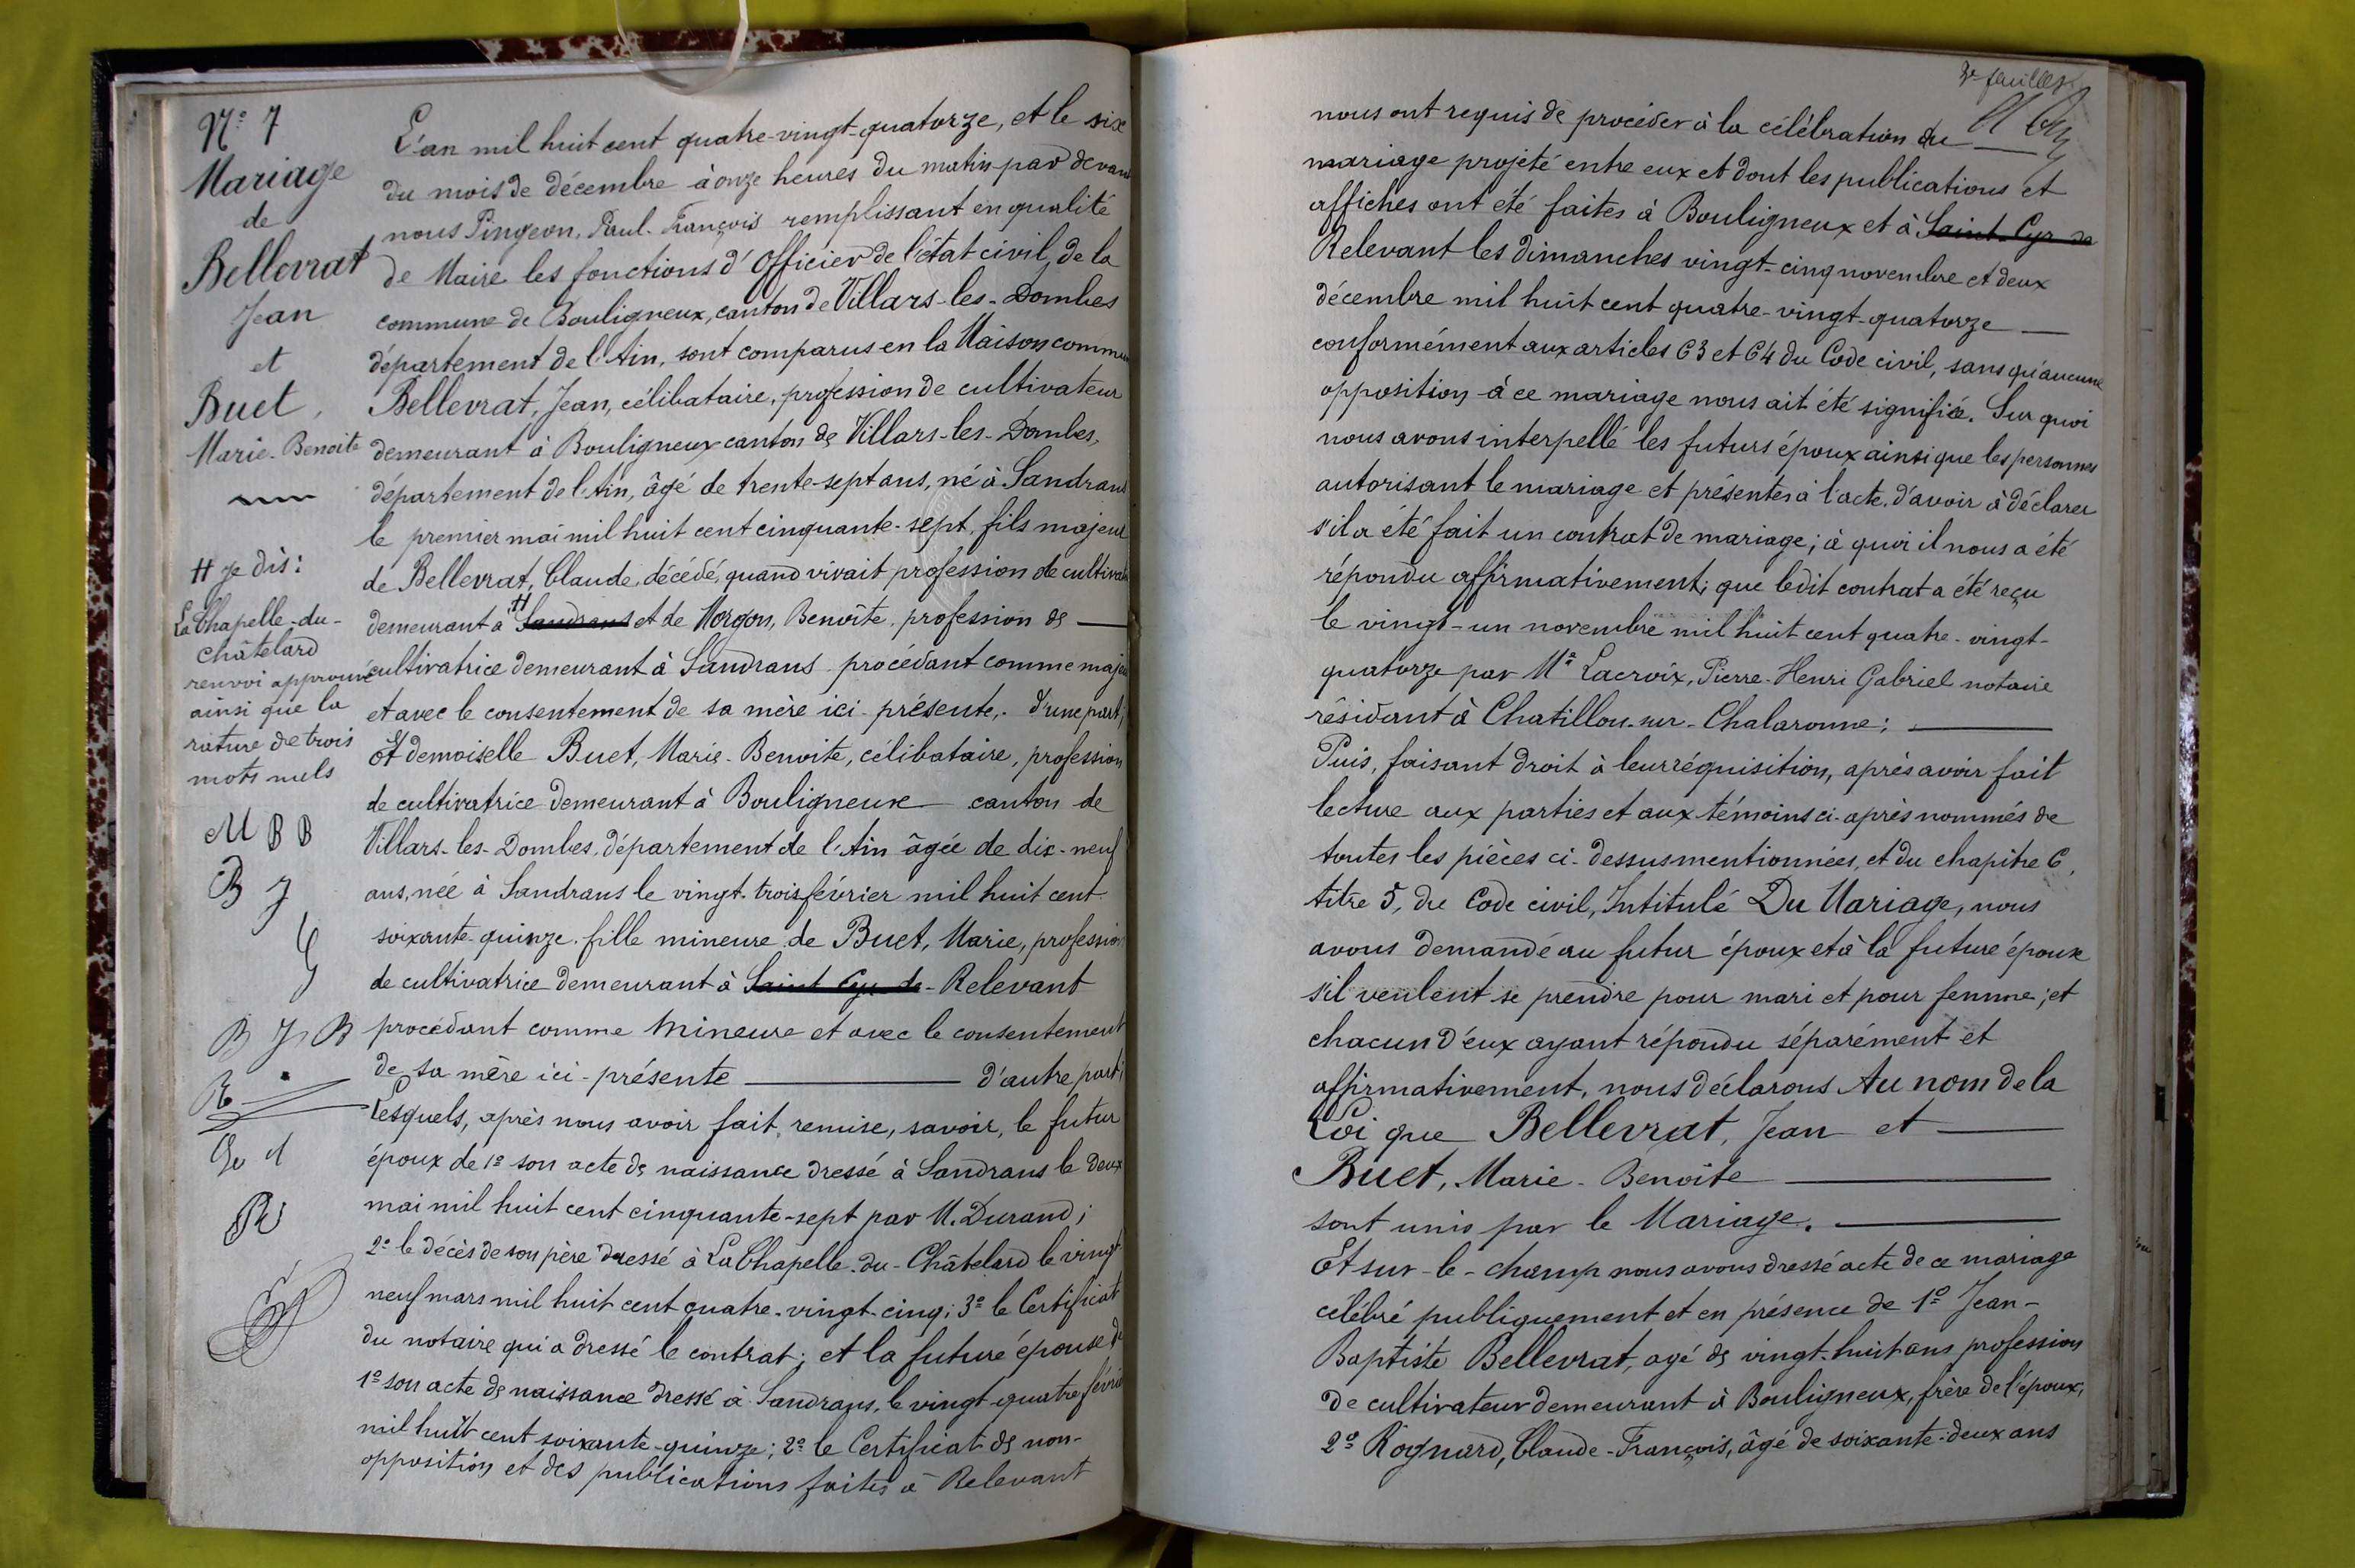 N° 7
Mariage
de
Bellevrat
Jean
et
Buet,
Marie-Benoite
# Je dis:
La Chapelle-du-
Châtelard
renvoi approuvé
ainsi que la
rature de trois
mots nuls
M B B
B J
B J B
R
L'an mil huit cent quatre-vingt-quatorze, et le six
du mois de décembre à onze heures du matin par devant
nous Pingeon, Paul-François remplissant en qualité
de Maire les fonctions d'Officier de l'état civil, de la
commune de Bouligneux, canton de Villars-les-Dombes
département de l'Ain, sont comparus en la Maison commune
Bellevrat, Jean, célibataire, profession de cultivateur
demeurant à Bouligneux canton de Villars-les-Dombes,
département de l'Ain, âgé de trente-sept ans, né à Sandrans
le premier mai mil huit cent cinquante-sept, fils majeur
de Bellevrat, Claude, décédé, quand vivait profession de cultivateur
demeurant à # Sandrans et de Morgon, Benoîte, profession de
cultivatrice demeurant à Sandrans procédant comme majeur
et avec le consentement de sa mère ici-présente, d'une part,
Et demoiselle Buet, Marie-Benoite, célibataire, profession
de cultivatrice demeurant à Bouligneux canton de
Villars-les-Dombes, département de l'Ain âgée de dix-neuf
ans, née à Sandrans le vingt-trois février mil huit cent
soixante-quinze, fille mineure de Buet, Marie, profession
de cultivatrice demeurant à Saint Cyr de-Relevant
procédant comme mineure et avec le consentement
de sa mère ici-présente d'autre part;
Lesquels, après nous avoir fait remise, savoir, le futur
époux de 1° son acte de naissance dressé à Sandrans le deux
mai mil huit cent cinquante-sept par M. Durand;
2° le décès de son père dressé à La Chapelle-du-Châtelard le vingt-
neuf mars mil huit cent quatre-vingt-cinq; 3° le Certificat
du notaire qui a dressé le contrat; et la future épouse de
1° son acte de naissance dressé à Sandrans, le vingt-quatre février
mil huit cent soixante-quinze; 2° le Certificat de non-
opposition et des publications faites à Relevant
3e feuillet
nous ont requis de procéder à la célébration du
mariage projeté entre eux et dont les publications et
affiches ont été faites à Bouligneux et à Saint-Cyr de
Relevant les dimanches vingt-cinq novembre et deux
décembre mil huit cent quatre-vingt-quatorze
conformément aux articles 63 et 64 du Code civil, sans qu'aucune
opposition à ce mariage nous ait été signifiée. Sur quoi
nous avons interpellé les futurs époux ainsi que les personnes
autorisant le mariage et présentes à l'acte, d'avoir à déclarer
s'il a été fait un contrat de mariage; à quoi il nous a été
répondu affirmativement; que ledit contrat a été reçu
le vingt-un novembre mil huit cent quatre-vingt-
quatorze par Me Lacroix, Pierre-Henri Gabriel notaire
résidant à Chatillon-sur-Chalaronne;
Puis, faisant droit à leur réquisition, après avoir fait
lecture aux parties et aux témoins ci-après nommés de
toutes les pièces ci-dessus mentionnées, et du chapitre 6,
titre 5, du Code civil, Intitulé Du Mariage, nous
avons demandé au futur époux et à la future épouse
s'il veulent se prendre pour mari et pour femme; et
chacun d'eux ayant répondu séparément et
affirmativement, nous déclarons Au nom de la
Loi que Bellevrat, Jean et
Buet, Marie-Benoite
sont unis par le Mariage.
Et sur-le-champ nous avons dressé acte de ce mariage
célébré publiquement et en présence de 1° Jean-
Baptiste Bellevrat, agé de vingt-huit ans profession
de cultivateur demeurant à Bouligneux, frère de l'époux;
2° Rognard, Claude-François, âgé de soixante-deux ans